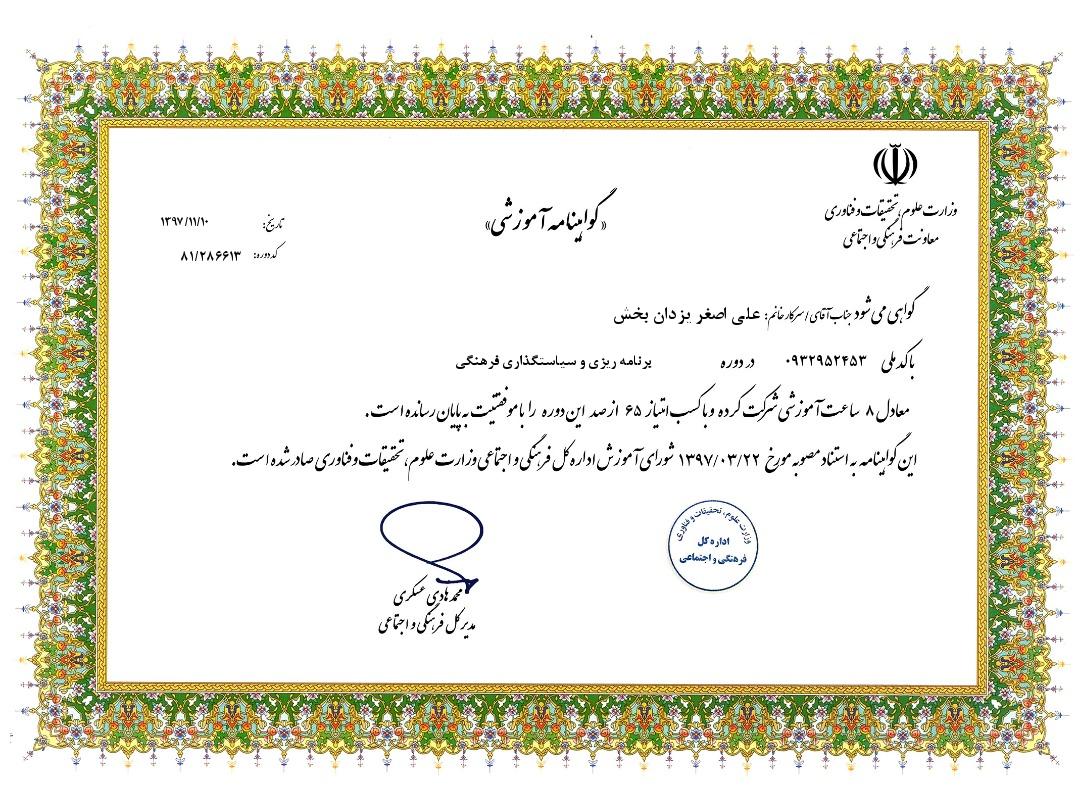 وزارت علوم، تحقیقات و فناوری
معاونت فرهنگی و اجتماعی
«گواهینامه آموزشی»
تاریخ: ۱۳۹۷/۱۱/۱۰
کد دوره: ۸۱/۲۸۶۶۱۳
گواهی می شود جناب آقای/سرکار خانم: علی اصغر یزدان بخش
با کد ملی ۰۹۳۲۹۵۲۴۵۳ در دوره برنامه ریزی و سیاستگذاری فرهنگی
معادل ۸ ساعت آموزشی شرکت کرده و با کسب امتیاز ۶۵ از صد این دوره را با موفقیت به پایان رسانده است.
این گواهینامه به استناد مصوبه مورخ ۱۳۹۷/۰۳/۲۲ شورای آموزش اداره کل فرهنگی و اجتماعی وزارت علوم، تحقیقات و فناوری صادر شده است.
وزارت علوم، تحقیقات و فناوری
اداره کل
فرهنگی و اجتماعی
محمد هادی عسکری
مدیر کل فرهنگی و اجتماعی